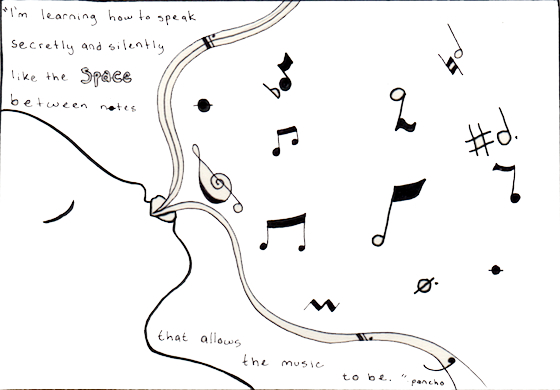 "I'm learning how to speak
secretly and silently
like the Space
between notes
that allows
the music
to be."
pancho